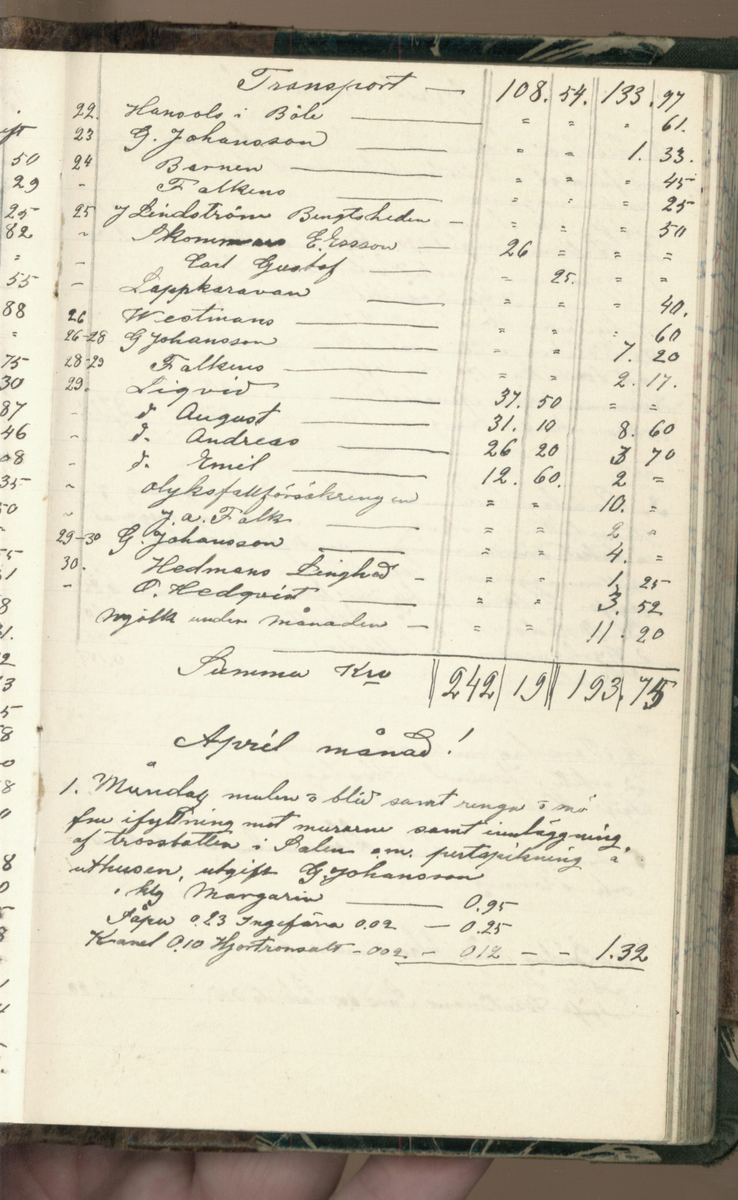 Transport — 108. 54. 133. 97
22. Hansols i Böle — " " " 61.
23 G. Johansson — " " 1. 33.
24 Barnen — " " " 45
" Falkens — " " " 25
25 Lindström Bengtsheden — " " " 50
" E. Ersson — 26 " " "
" Carl Gustaf — " 25. " "
" Lappkaravan — " " " 40.
26 Westmans — " " " 60
26-28 G Johansson — " " 7. 20
28-29 Falkens — " " 2. 17.
29. Liqvid — 37. 50 " "
" d. August — 31. 10 8. 60
" d. Andreas — 26 20 3 70
" d. Emil — 12. 60. 2 "
" olyksfallförsäkringen " " 10. "
" J. a. Falk — " " 2 "
29-30 G. Johansson — " " 4. "
30. Hedmans Linghed — " " 1. 25
" O. Hedqvist — " " 3. 52
Mjölk under månaden — " " 11. 20
Summa Kro 242 19 193. 75
April månad!
1. Måndag mulen o blid samt rengn o
ifyllning mot murarne samt innläggning
af trossbotten i Salen em. pertspikning å
uthusen, utgift G Johansson
1 klg Margarin — 0.95
Såpa 0.23 Ingefära 0.02 — 0.25
Kanel 0.10 Hjortronsalt - 002 - 012 — — 1.32
50
29
25
82
"
55
88
"
75
30
87
46
08
35
50